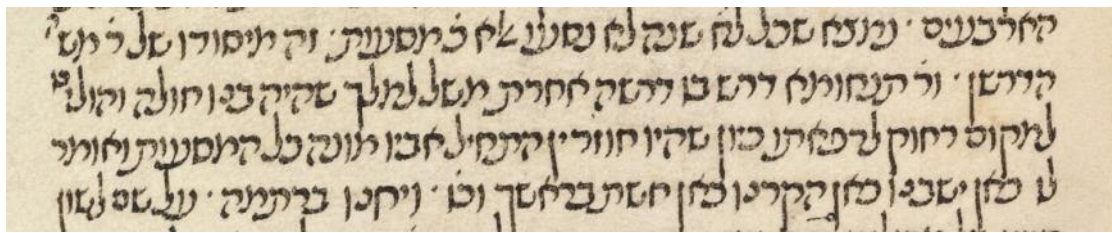 הארבעים · נמצא שכל לח שנה לא נסעו אלא כ׳ מסעות · זה מיסודו של ר׳ מש׳
הדרשן · ור׳ תנחומא דרש בו דרשה אחרת משל למלך שהיה בנו חולה והולי׳
למקום רחוק לרפאתו כיון שהיו חוזרין התחיל אביו מונה כל המסעות ואומר
לו כאן ישננו כאן הקרנו כאן חשת בראשך וכו׳ · ויחנו ברתמה · על שם לשון